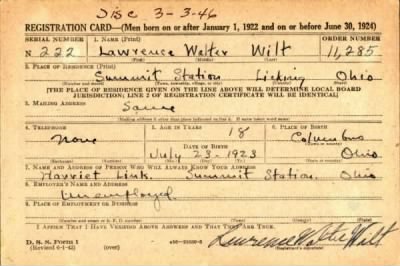 Disc 3-3-46
REGISTRATION CARD—(Men born on or after January 1, 1922 and on or before June 30, 1924)
SERIAL NUMBER 1. NAME (Print) ORDER NUMBER
N 222 Lawrence Walter Wilt 11,285
(First) (Middle) (Last)
2. PLACE OF RESIDENCE (Print)
Summit Station Licking Ohio
(Number and street) (Town, township, village, or city) (County) (State)
[THE PLACE OF RESIDENCE GIVEN ON THE LINE ABOVE WILL DETERMINE LOCAL BOARD
JURISDICTION; LINE 2 OF REGISTRATION CERTIFICATE WILL BE IDENTICAL]
3. MAILING ADDRESS
Same
[Mailing address if other than place indicated on line 2. If same insert word same]
4. TELEPHONE 5. AGE IN YEARS 6. PLACE OF BIRTH
None 18 Columbus
DATE OF BIRTH
July 23-1923 Ohio
7. NAME AND ADDRESS OF PERSON WHO WILL ALWAYS KNOW YOUR ADDRESS
Harriet Link. Summit Station. Ohio
8. EMPLOYER'S NAME AND ADDRESS
Unemployed
9. PLACE OF EMPLOYMENT OR BUSINESS
(Number and street or R. F. D. number) (Town) (County) (State)
I AFFIRM THAT I HAVE VERIFIED ABOVE ANSWERS AND THAT THEY ARE TRUE.
D. S. S. Form 1
(Revised 6-1-42) (over) Lawrence Walter Wilt